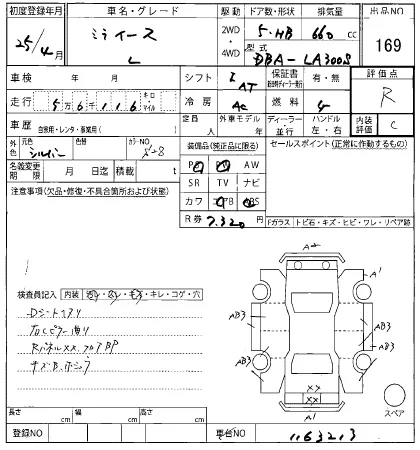 初度登録年月 車名・グレード 駆動 ドア数・形状 排気量 出品NO
25/4月 ミライース L 2WD ・ 4WD 5・HB 660 cc 169
型式 DBA-LA300S
車検 年 月 シフト I AT 保証書 有・無 評価点
走行 5万6千116 キロ・マイル 冷房 AC 燃料 R
車歴 自家用・レンタ・事業用( ) 定員 人 外車モデル 年 ディーラー・並行 ハンドル 左・右 内装評価 C
外色 元色 シルバー 色替 カラーNO 装備品(純正品に限る) セールスポイント(正常に作動するもの)
名義変更期限 月 日迄 積載 t PS PW AW
注意事項(欠品・修復・不具合箇所および状態) SR TV ナビ
カワ エアB ABS
R券 7.320 円 Fガラス トビ石・キズ・ヒビ・ワレ・リペア跡
検査員記入 内装 キレ・コゲ・穴
A2
A1
AB3 AB3
AB3 AB3
XX
XX
A1
スペア
長さ cm 幅 cm 高さ cm
登録NO 車台NO 1163213